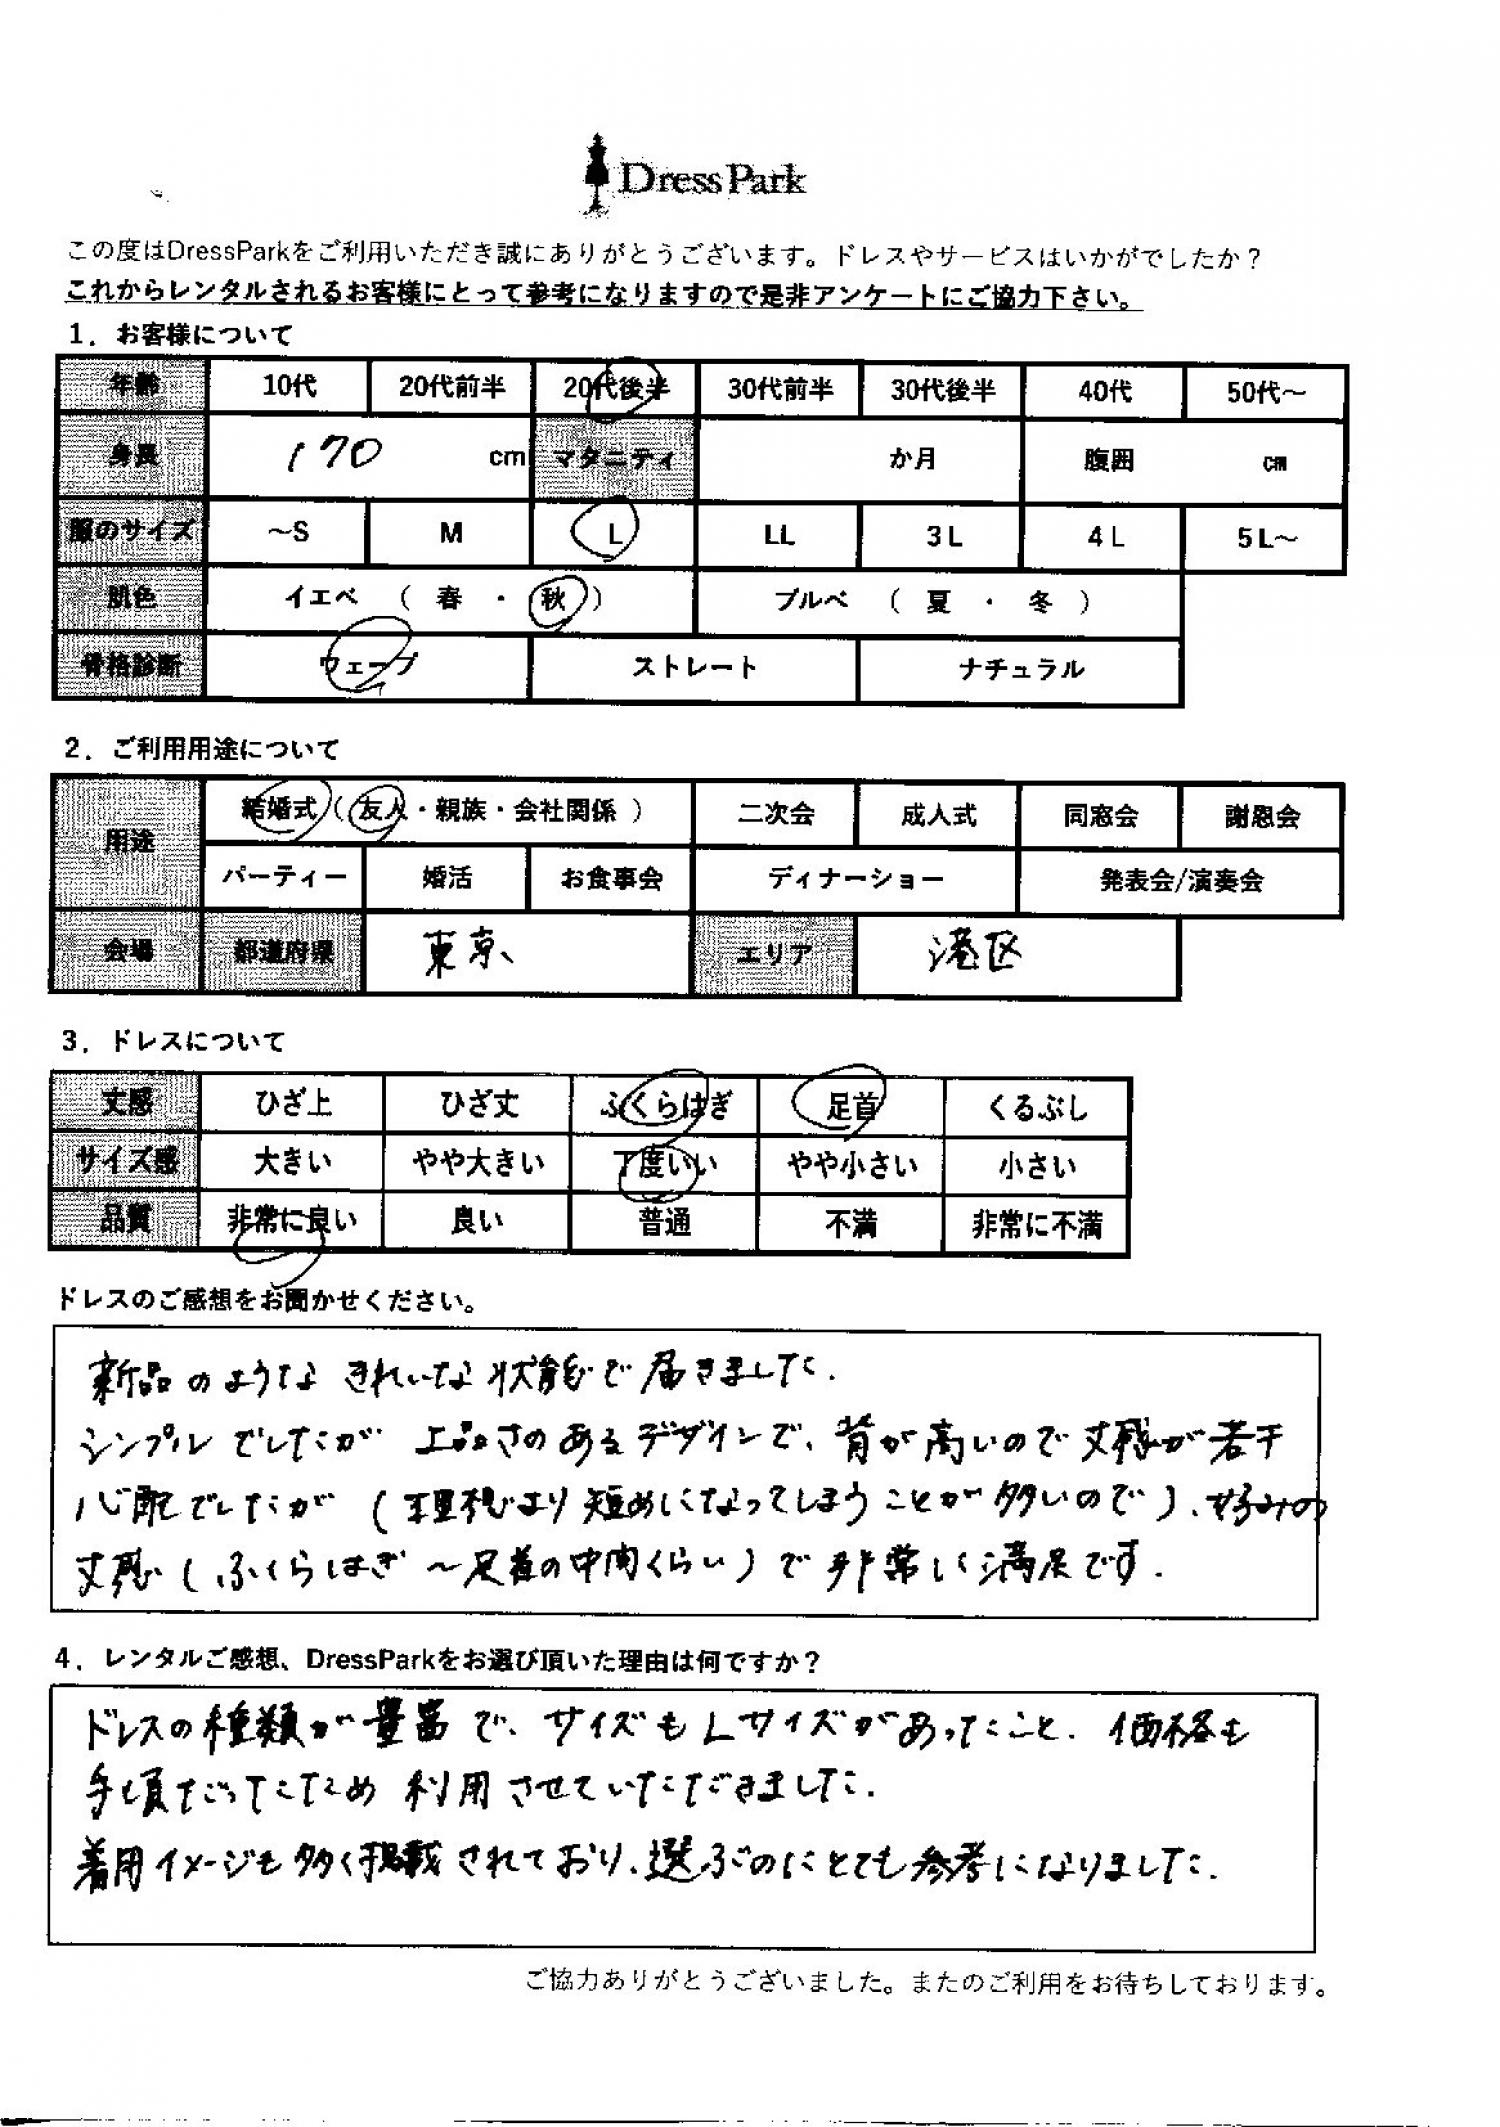 DressPark
この度はDressParkをご利用いただき誠にありがとうございます。ドレスやサービスはいかがでしたか？
これからレンタルされるお客様にとって参考になりますので是非アンケートにご協力下さい。
1．お客様について
年齢 10代 20代前半 20代後半 30代前半 30代後半 40代 50代～
身長 170 cm マタニティ か月 腹囲 cm
服のサイズ ～S M L LL 3L 4L 5L～
肌色 イエベ （ 春 ・ 秋 ） ブルベ （ 夏 ・ 冬 ）
骨格診断 ウェーブ ストレート ナチュラル
2．ご利用用途について
用途 結婚式（ 友人・親族・会社関係 ） 二次会 成人式 同窓会 謝恩会
パーティー 婚活 お食事会 ディナーショー 発表会/演奏会
会場 都道府県 東京、 エリア 港区
3．ドレスについて
丈感 ひざ上 ひざ丈 ふくらはぎ 足首 くるぶし
サイズ感 大きい やや大きい 丁度いい やや小さい 小さい
品質 非常に良い 良い 普通 不満 非常に不満
ドレスのご感想をお聞かせください。
新品のようなきれいな状態で届きました.
シンプルでしたが 上品さのあるデザインで、背が高いので丈感が若干
心配でしたが (理想より短めになってしまうことが多いので)、好みの
丈感 (ふくらはぎ～足首の中間くらい) で非常に満足です.
4．レンタルご感想、DressParkをお選び頂いた理由は何ですか？
ドレスの種類が豊富で、サイズもLサイズがあったこと. 価格も
手頃だったため 利用させていただきました.
着用イメージも多く掲載されており、選ぶのにとても参考になりました.
ご協力ありがとうございました。またのご利用をお待ちしております。